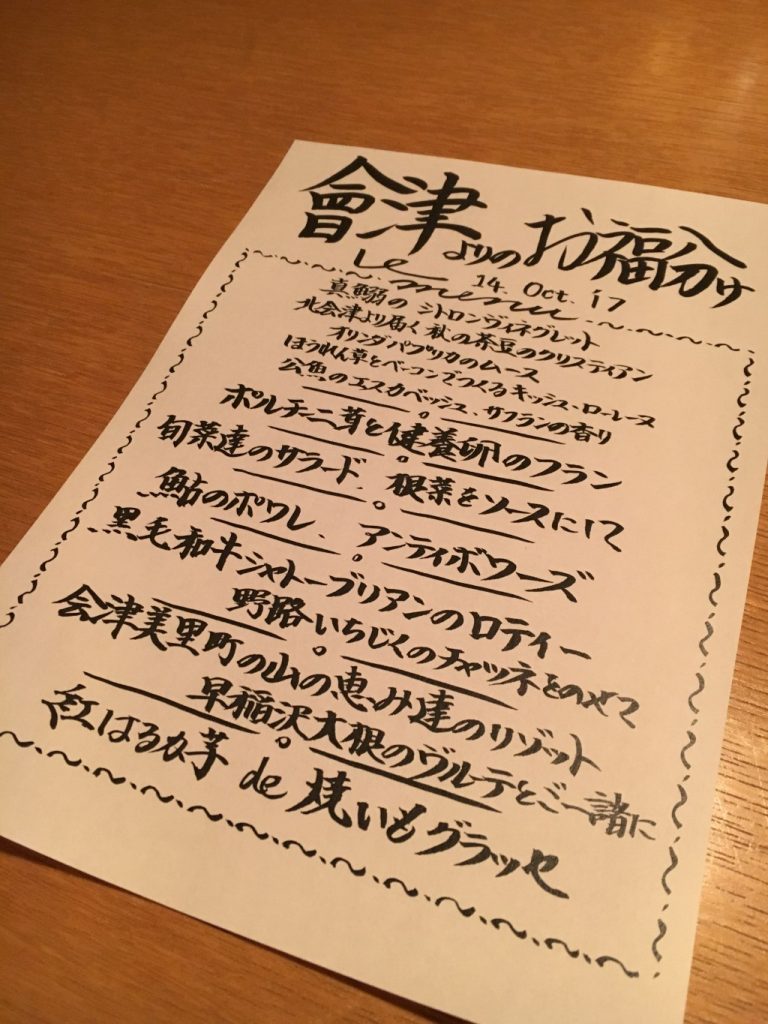 會津よりのお福分け
Le menu 14. Oct. 17
真鰯の シトロンヴィネグレット
北会津より届く秋の茶豆のクリスティアン
オリンダパプリカのムース
ほうれん草とベーコンでつくるキッシュ・ローレーヌ
公魚のエスカベッシュ、サフランの香り
ポルチーニ茸と健養卵のフラン
旬菜達のサラード、根菜をソースにして
鮎のポワレ、アンティボワーズ
黒毛和牛シャトーブリアンのロティー
野路いちじくのチャツネをのせて
会津美里町の山の恵み達のリゾット
早稲沢大根のヴルテとご一諸に
紅はるか芋 de 焼いもグラッセ